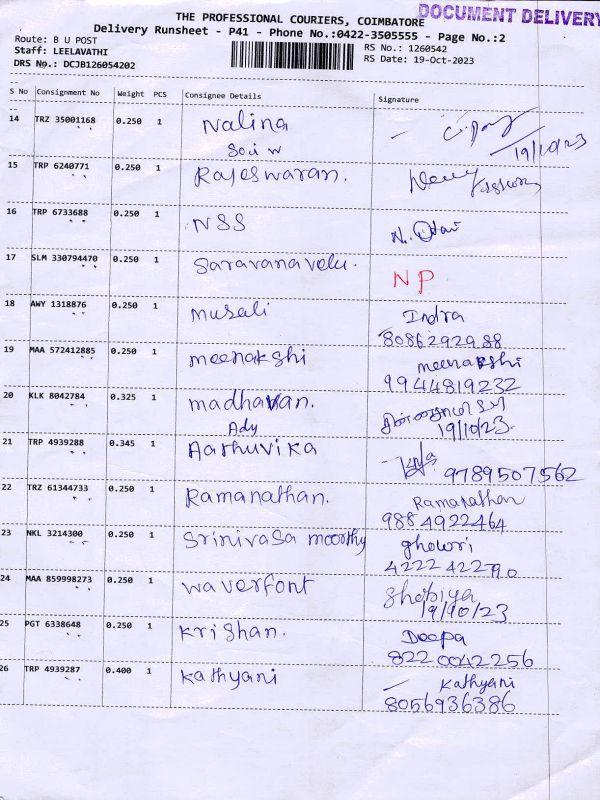 DOCUMENT DELIVERY
THE PROFESSIONAL COURIERS, COIMBATORE
Delivery Runsheet - P41 - Phone No.:0422-3505555 - Page No.:2
Route: B U POST
Staff: LEELAVATHI
DRS No.: DCJB126054202
RS No.: 1260542
RS Date: 19-Oct-2023
S No Consignment No Weight PCS Consignee Details Signature
14 TRZ 35001168 0.250 1 Nalina
19/10/23
15 TRP 6240771 0.250 1 Rajeswaran.
16 TRP 6733688 0.250 1 NSS N.
17 SLM 330794470 0.250 1 Saravanavelu. NP
18 AWY 1318876 0.250 1 musali Indra
8086292988
19 MAA 572412885 0.250 1 meenakshi meenakshi
9944819232
20 KLK 8042784 0.325 1 madhavan.
19/10/23.
Ady
21 TRP 4939288 0.345 1 Aathuvika 9789507562
22 TRZ 61344733 0.250 1 Ramanathan. Ramanathan
9884922464
23 NKL 3214300 0.250 1 Srinivasa moorthy ghowri
4222 42290
24 MAA 859998273 0.250 1 waverfont
19/10/23
25 PGT 6338648 0.250 1 Krishan. Deepa
8220042256
26 TRP 4939287 0.400 1 Kathyani Kathyani
8056936386